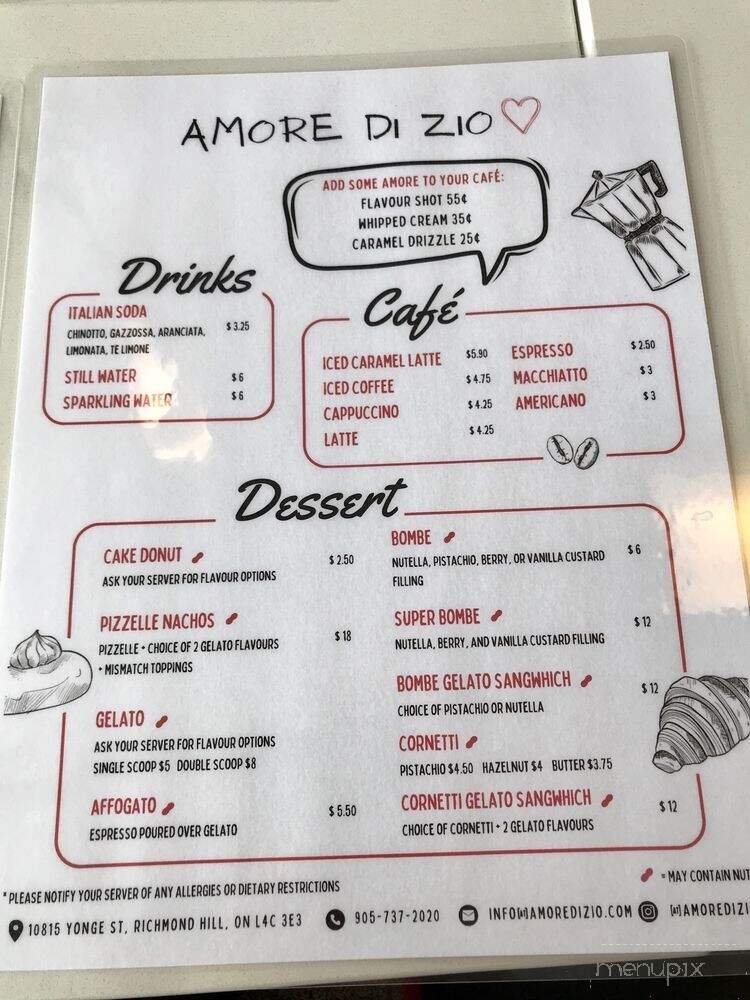 AMORE DI ZIO
ADD SOME AMORE TO YOUR CAFÉ:
FLAVOUR SHOT 55¢
WHIPPED CREAM 35¢
CARAMEL DRIZZLE 25¢
Drinks
ITALIAN SODA
CHINOTTO, GAZZOSSA, ARANCIATA, $ 3.25
LIMONATA, TE LIMONE
STILL WATER $ 6
SPARKLING WATER $ 6
Café
ICED CARAMEL LATTE $5.90
ICED COFFEE $ 4.75
CAPPUCCINO $ 4.25
LATTE $ 4.25
ESPRESSO $ 2.50
MACCHIATTO $ 3
AMERICANO $ 3
Dessert
CAKE DONUT $ 2.50
ASK YOUR SERVER FOR FLAVOUR OPTIONS
PIZZELLE NACHOS $ 18
PIZZELLE + CHOICE OF 2 GELATO FLAVOURS
+ MISMATCH TOPPINGS
GELATO
ASK YOUR SERVER FOR FLAVOUR OPTIONS
SINGLE SCOOP $5 DOUBLE SCOOP $8
AFFOGATO $ 5.50
ESPRESSO POURED OVER GELATO
BOMBE $ 6
NUTELLA, PISTACHIO, BERRY, OR VANILLA CUSTARD
FILLING
SUPER BOMBE $ 12
NUTELLA, BERRY, AND VANILLA CUSTARD FILLING
BOMBE GELATO SANGWHICH $ 12
CHOICE OF PISTACHIO OR NUTELLA
CORNETTI
PISTACHIO $4.50 HAZELNUT $4 BUTTER $3.75
CORNETTI GELATO SANGWHICH $ 12
CHOICE OF CORNETTI + 2 GELATO FLAVOURS
= MAY CONTAIN NUT
* PLEASE NOTIFY YOUR SERVER OF ANY ALLERGIES OR DIETARY RESTRICTIONS
10815 YONGE ST, RICHMOND HILL, ON L4C 3E3 905-737-2020 INFO[@]AMOREDIZIO.COM [@]AMOREDIZI
menupix